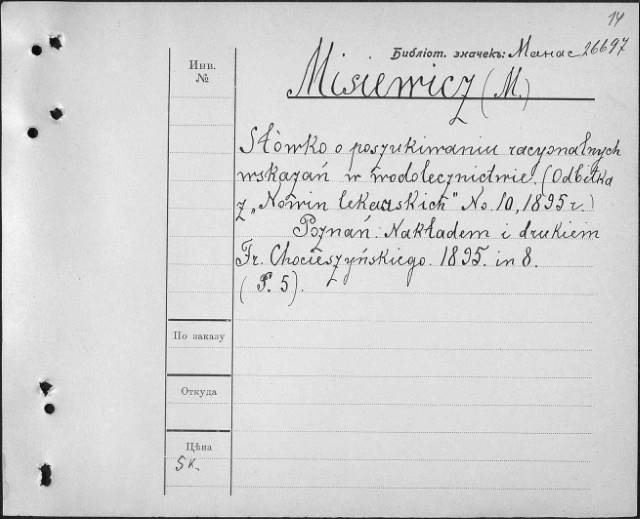 14
Библіот. значекъ: Манас 26697
Инв.
№
Misiewicz (M.)
Słówko o poszukiwaniu racyonalnych
wskazań w wodolecznictwie. (Odbitka
z „Nowin Lekarskich" No. 10, 1895 r.)
Poznań. Nakładem i drukiem
Fr. Chocieszyńskiego. 1895. in 8.
(P. 5).
По заказу
Откуда
Цѣна
5 к.